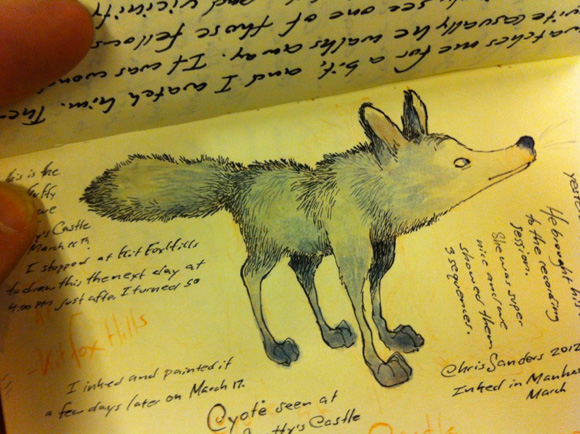 watches me for a bit, and I watch him. The
casually he walks away. It was won
see one of those fellows
and vicinity
is is the
y's Castle
March
I stopped at Kit Fox Hills
to draw this the next day at
4:00 pm just after I turned 50
Kit Fox Hills
I inked and painted it
a few days later on March 17.
Coyote seen at
tty's Castle
yester
He brought hi
to the recording
session.
She was super
nice and we
showed them
3 sequences.
©Chris Sanders 2012
Inked in Manha
March